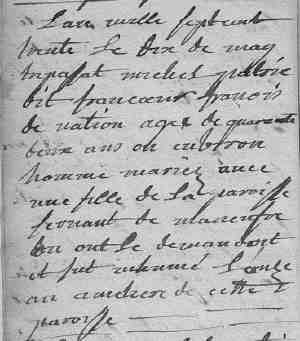 L'an mille sept cent
trente Le dix de may
trepassat michel
dit francoeur francois
de nation agé de quarente
deux ans ou environ
homme mariez avec
une fille de La paroisse
servant de
Le demandant
et fut inhumé L'onze
au cimetiere de cette
paroisse